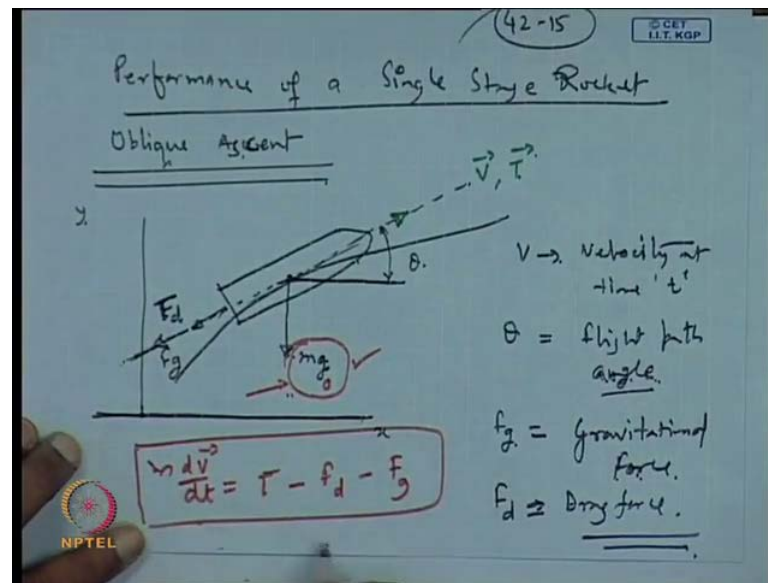 42-15
© CET
I.I.T. KGP
Performance of a Single Stage Rocket
Oblique Ascent
y
V⃗, T⃗
θ
F_d
F_g
mg_0
x
V → Velocity at
time 't'
θ = flight path
angle
f_g = Gravitational
force.
F_d = Drag force.
m dV⃗/dt = T - f_d - F_g
NPTEL